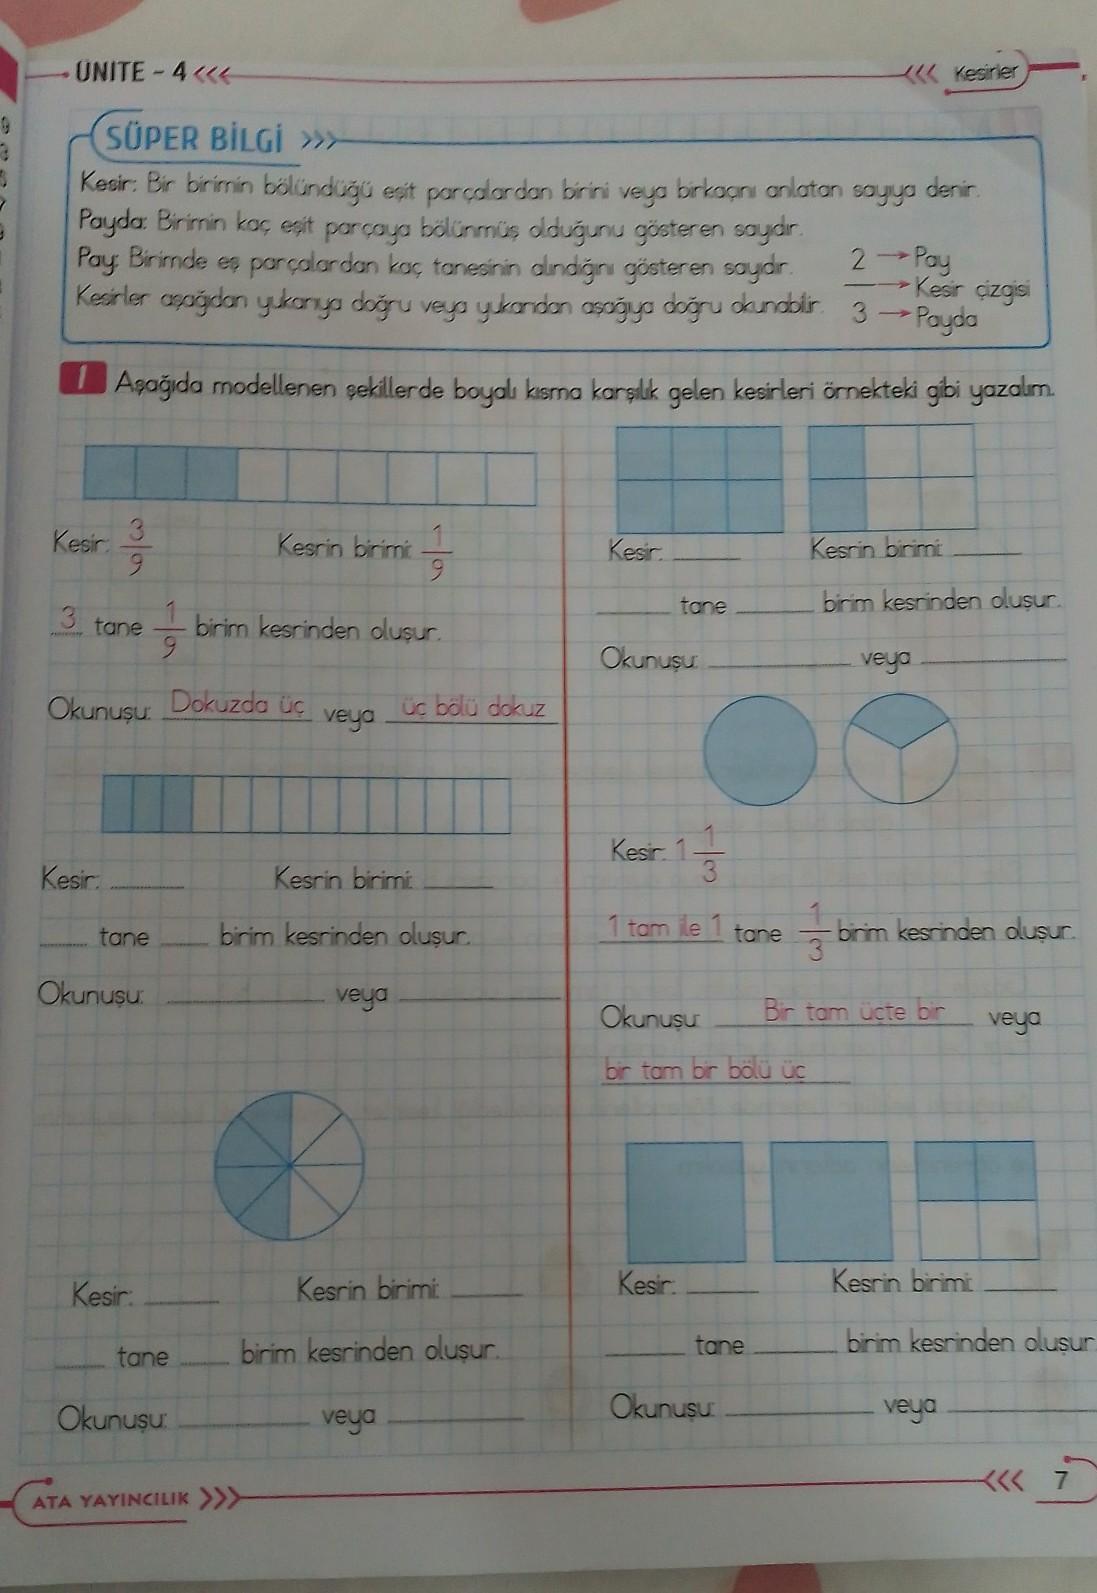 ÜNİTE - 4
Kesirler
SÜPER BİLGİ
Kesir: Bir birimin bölündüğü eşit parçalardan birini veya birkaçını anlatan sayıya denir.
Payda: Birimin kaç eşit parçaya bölünmüş olduğunu gösteren sayıdır.
Pay: Birimde eş parçalardan kaç tanesinin alındığını gösteren sayıdır.
Kesirler aşağıdan yukarıya doğru veya yukarıdan aşağıya doğru okunabilir.
2 → Pay
→ Kesir çizgisi
3 → Payda
1 Aşağıda modellenen şekillerde boyalı kısma karşılık gelen kesirleri örnekteki gibi yazalım.
Kesir: 3/9 Kesrin birimi: 1/9
3 tane 1/9 birim kesrinden oluşur.
Okunuşu: Dokuzda üç veya üç bölü dokuz
Kesir: Kesrin birimi:
tane birim kesrinden oluşur.
Okunuşu: veya
Kesir: Kesrin birimi:
tane birim kesrinden oluşur.
Okunuşu: veya
Kesir: Kesrin birimi:
tane birim kesrinden oluşur.
Okunuşu: veya
Kesir: 1 1/3
1 tam ile 1 tane 1/3 birim kesrinden oluşur.
Okunuşu: Bir tam üçte bir veya
bir tam bir bölü üç
Kesir: Kesrin birimi:
tane birim kesrinden oluşur
Okunuşu: veya
ATA YAYINCILIK
7